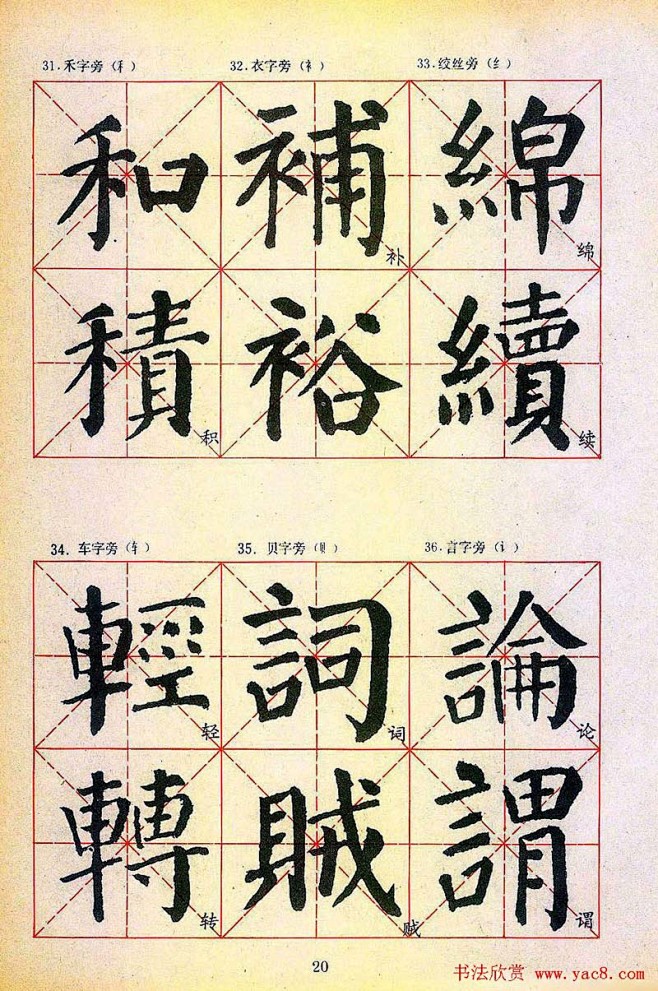 31.禾字旁(禾) 32.衣字旁(衤) 33.绞丝旁(纟)
和 補 补 綿 绵
積 积 裕 續 续
34.车字旁(车) 35.贝字旁(贝) 36.言字旁(讠)
輕 轻 詞 词 論 论
轉 转 賊 贼 謂 谓
20
书法欣赏 www.yac8.com